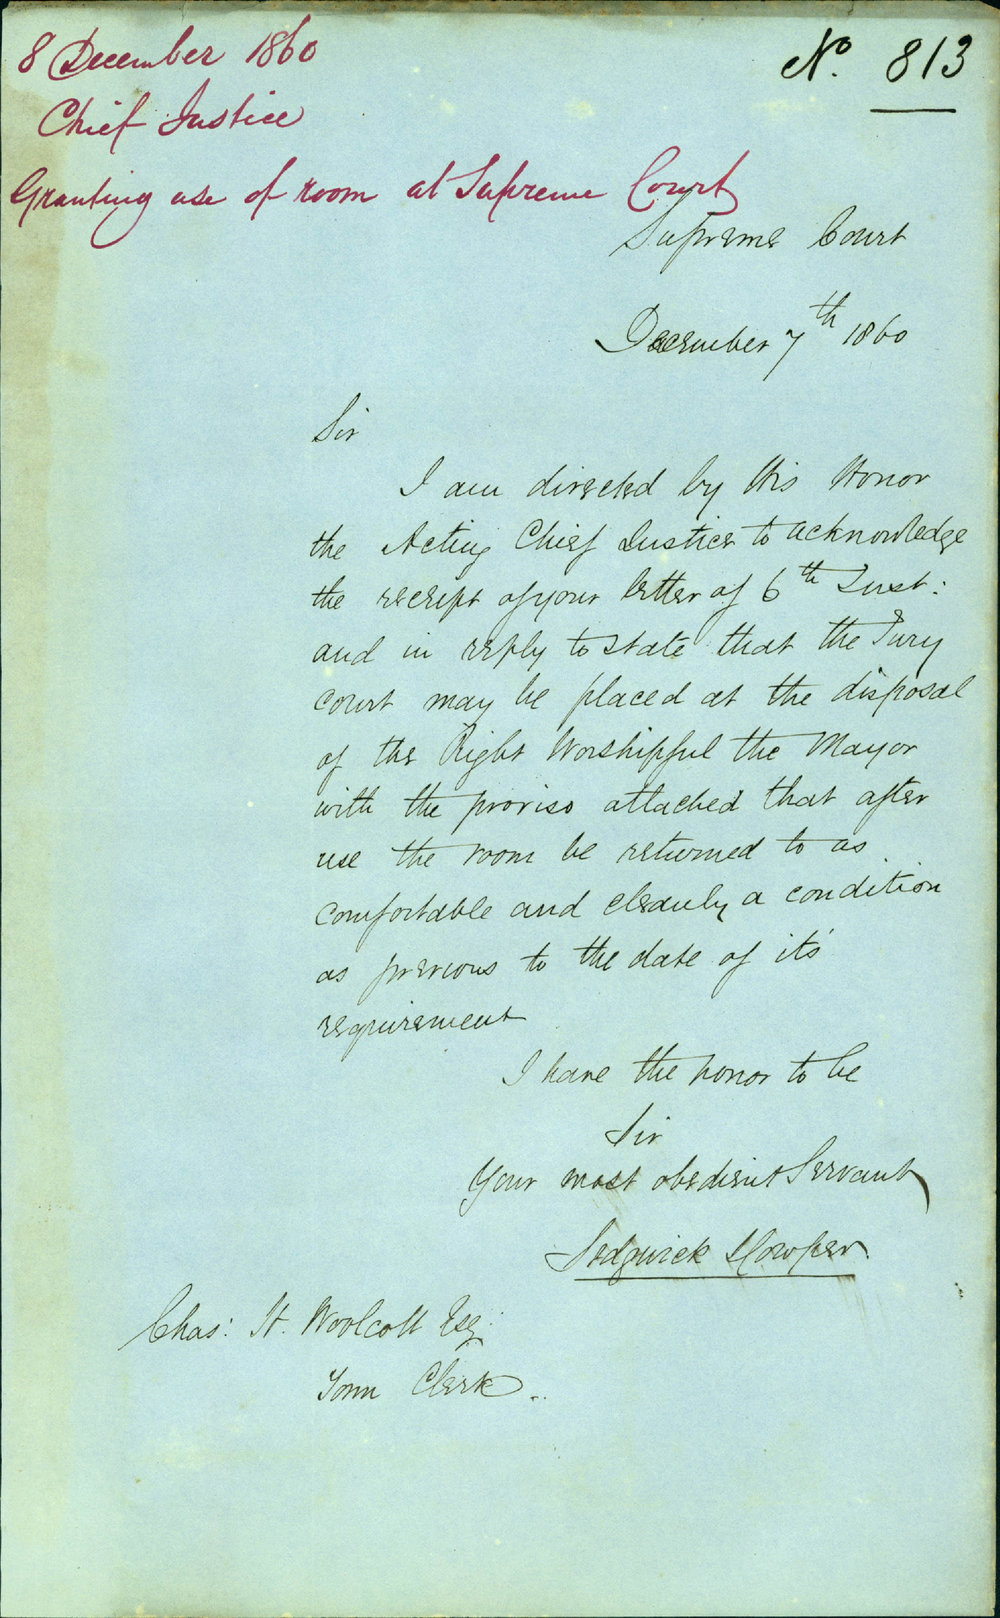 8 December 1860
No. 813
Chief Justice
Granting use of room at Supreme Court
Supreme Court
December 7th 1860
Sir
I am directed by His Honor
the Acting Chief Justice to acknowledge
the receipt of your letter of 6th Inst:
and in reply to state that the Jury
court may be placed at the disposal
of the Right Worshipful the Mayor
with the proviso attached that after
use the room be returned to as
comfortable and cleanly a condition
as previous to the date of its'
requirement
I have the honor to be
Sir
Your most obedient Servant
Sedgwick Cowper
Chas: H. Woolcott Esq.
Town Clerk..